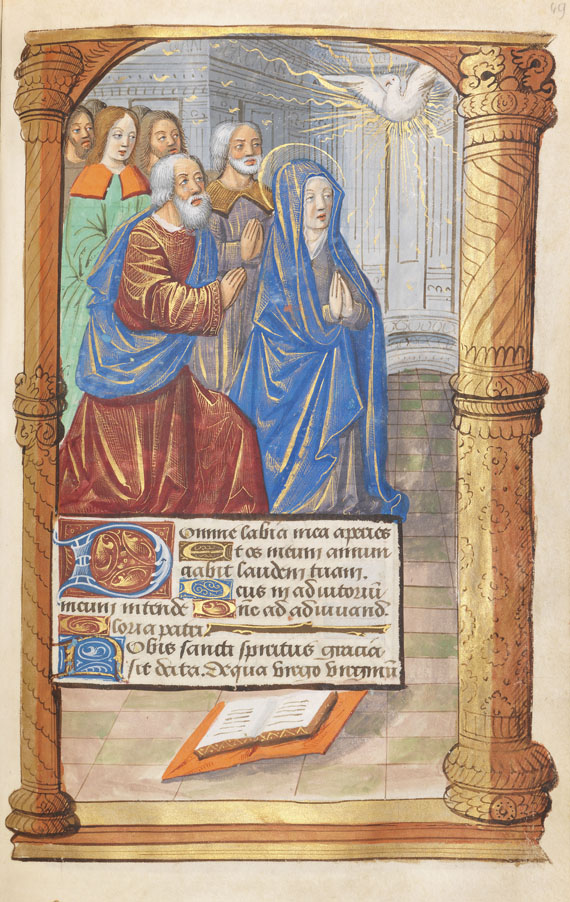 49
Domine labia mea aperies
Et os meum annun
tiabit laudem tuam.
Deus in adiutoriũ
meum intende Dñe ad adiuuand
Gloria patri
Nobis sancti spiritus gracia
sit data. De qua virgo virginũ